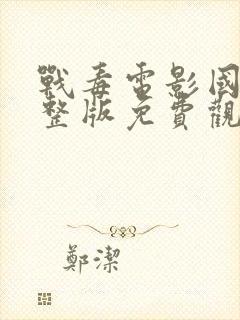 戰毒電影國
整版免費觀
鄭潔